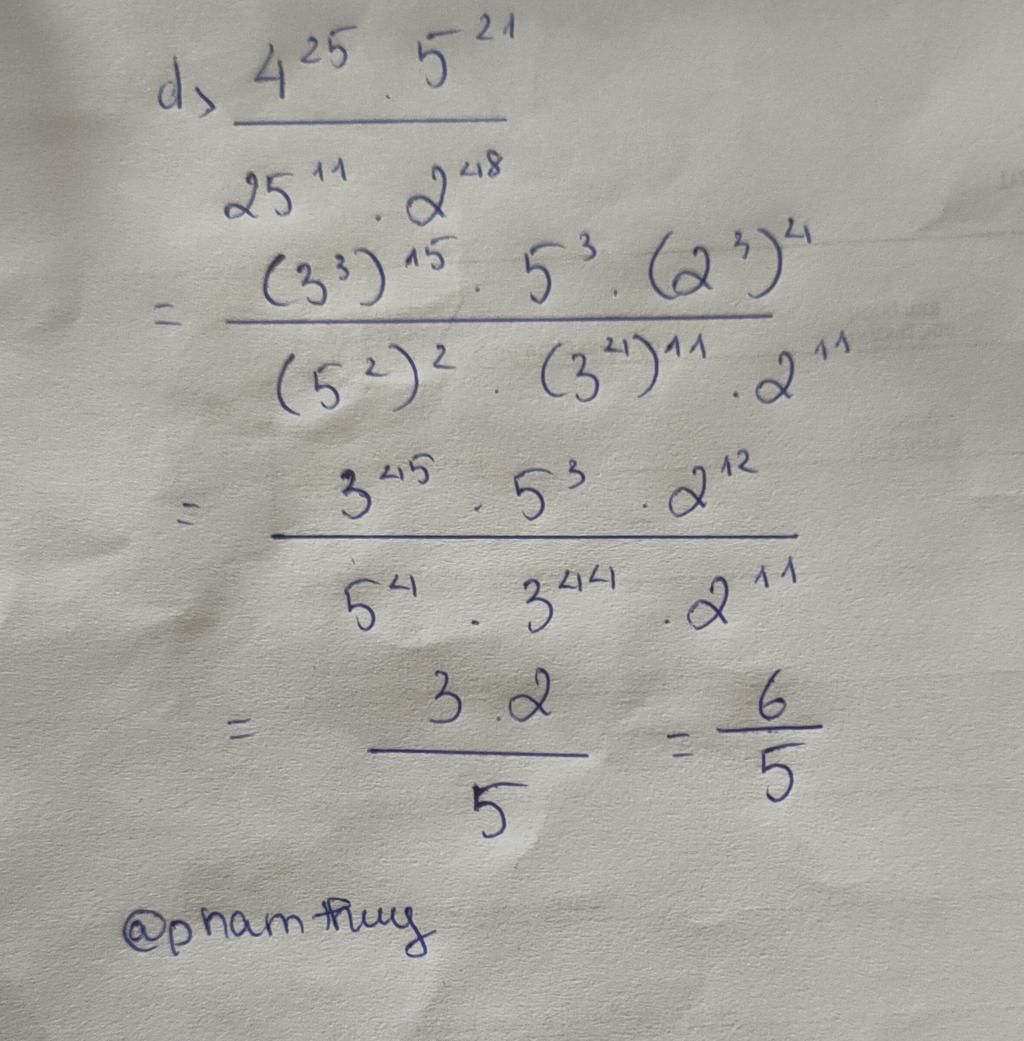 d, 4^25 . 5^21 / 25^11 . 2^48
= (3^3)^15 . 5^3 . (2^3)^4 / (5^2)^2 . (3^4)^11 . 2^11
= 3^45 . 5^3 . 2^12 / 5^4 . 3^44 . 2^11
= 3 . 2 / 5 = 6 / 5
@pham thuy